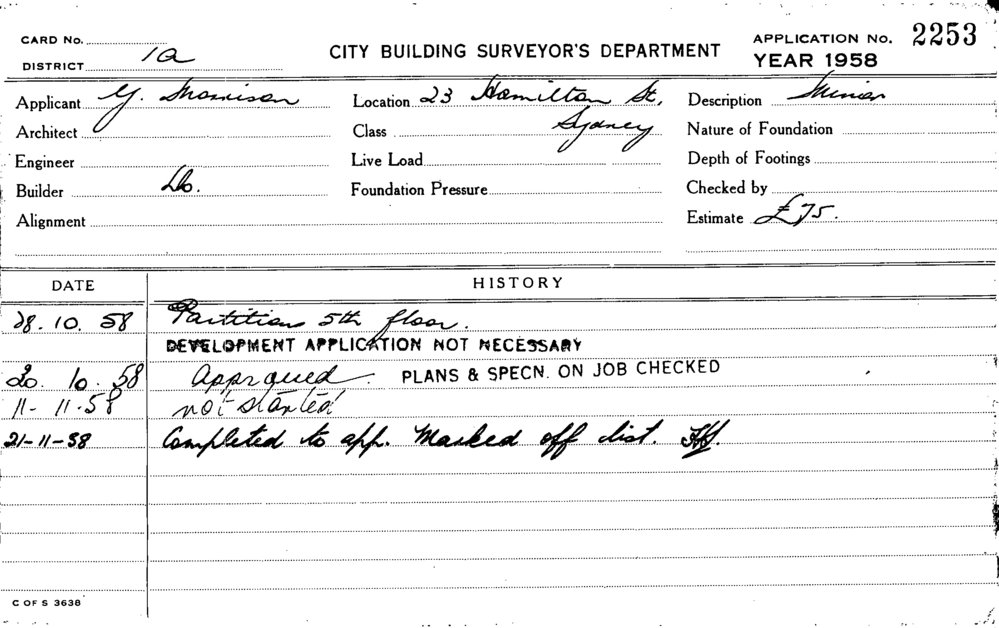 CARD No.
DISTRICT 1a
CITY BUILDING SURVEYOR'S DEPARTMENT
APPLICATION No. 2253
YEAR 1958
Applicant Y. Morrison Location 23 Hamilton St. Description Minor
Architect Class Sydney Nature of Foundation
Engineer Live Load Depth of Footings
Builder Do. Foundation Pressure Checked by
Alignment Estimate £75.
DATE HISTORY
.10.58 Partitions 5th floor.
DEVELOPMENT APPLICATION NOT NECESSARY
. 10. 58 Approved. PLANS & SPECN. ON JOB CHECKED
11-11.58 not started
21-11-58 Completed to app. Marked off list.
C OF S 3638